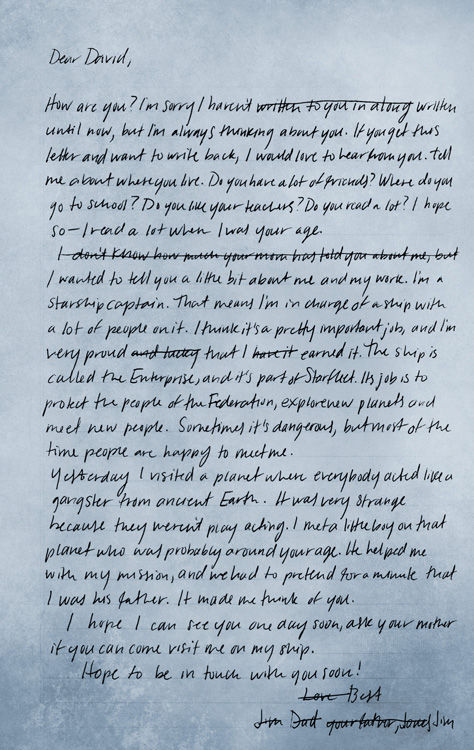 Dear David,
How are you? I'm sorry I haven't written to you in along written
until now, but I'm always thinking about you. If you get this
letter and want to write back, I would love to hear from you. Tell
me about where you live. Do you have a lot of friends? Where do you
go to school? Do you like your teachers? Do you read a lot? I hope
so—I read a lot when I was your age.
I don't know how much your mom has told you about me, but
I wanted to tell you a little bit about me and my work. I'm a
starship captain. That means I'm in charge of a ship with
a lot of people on it. I think it's a pretty important job, and I'm
very proud and lucky that I have it earned it. The ship is
called the Enterprise, and it's part of Starfleet. Its job is to
protect the people of the Federation, explore new planets and
meet new people. Sometimes it's dangerous, but most of the
time people are happy to meet me.
Yesterday I visited a planet where everybody acted like a
gangster from ancient Earth. It was very strange
because they weren't play acting. I met a little boy on that
planet who was probably around your age. He helped me
with my mission, and we had to pretend for a minute that
I was his father. It made me think of you.
I hope I can see you one day soon, ask your mother
if you can come visit me on my ship.
Hope to be in touch with you soon!
Love Best
Jim Dad your father, Jim